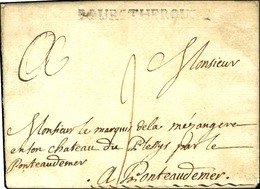 BOURGTHEROUDE
Monsieur
Monsieur le marquis de la mézangere
en son chateau du Plessys par le
Ponteaudemer
A Ponteaudemer.